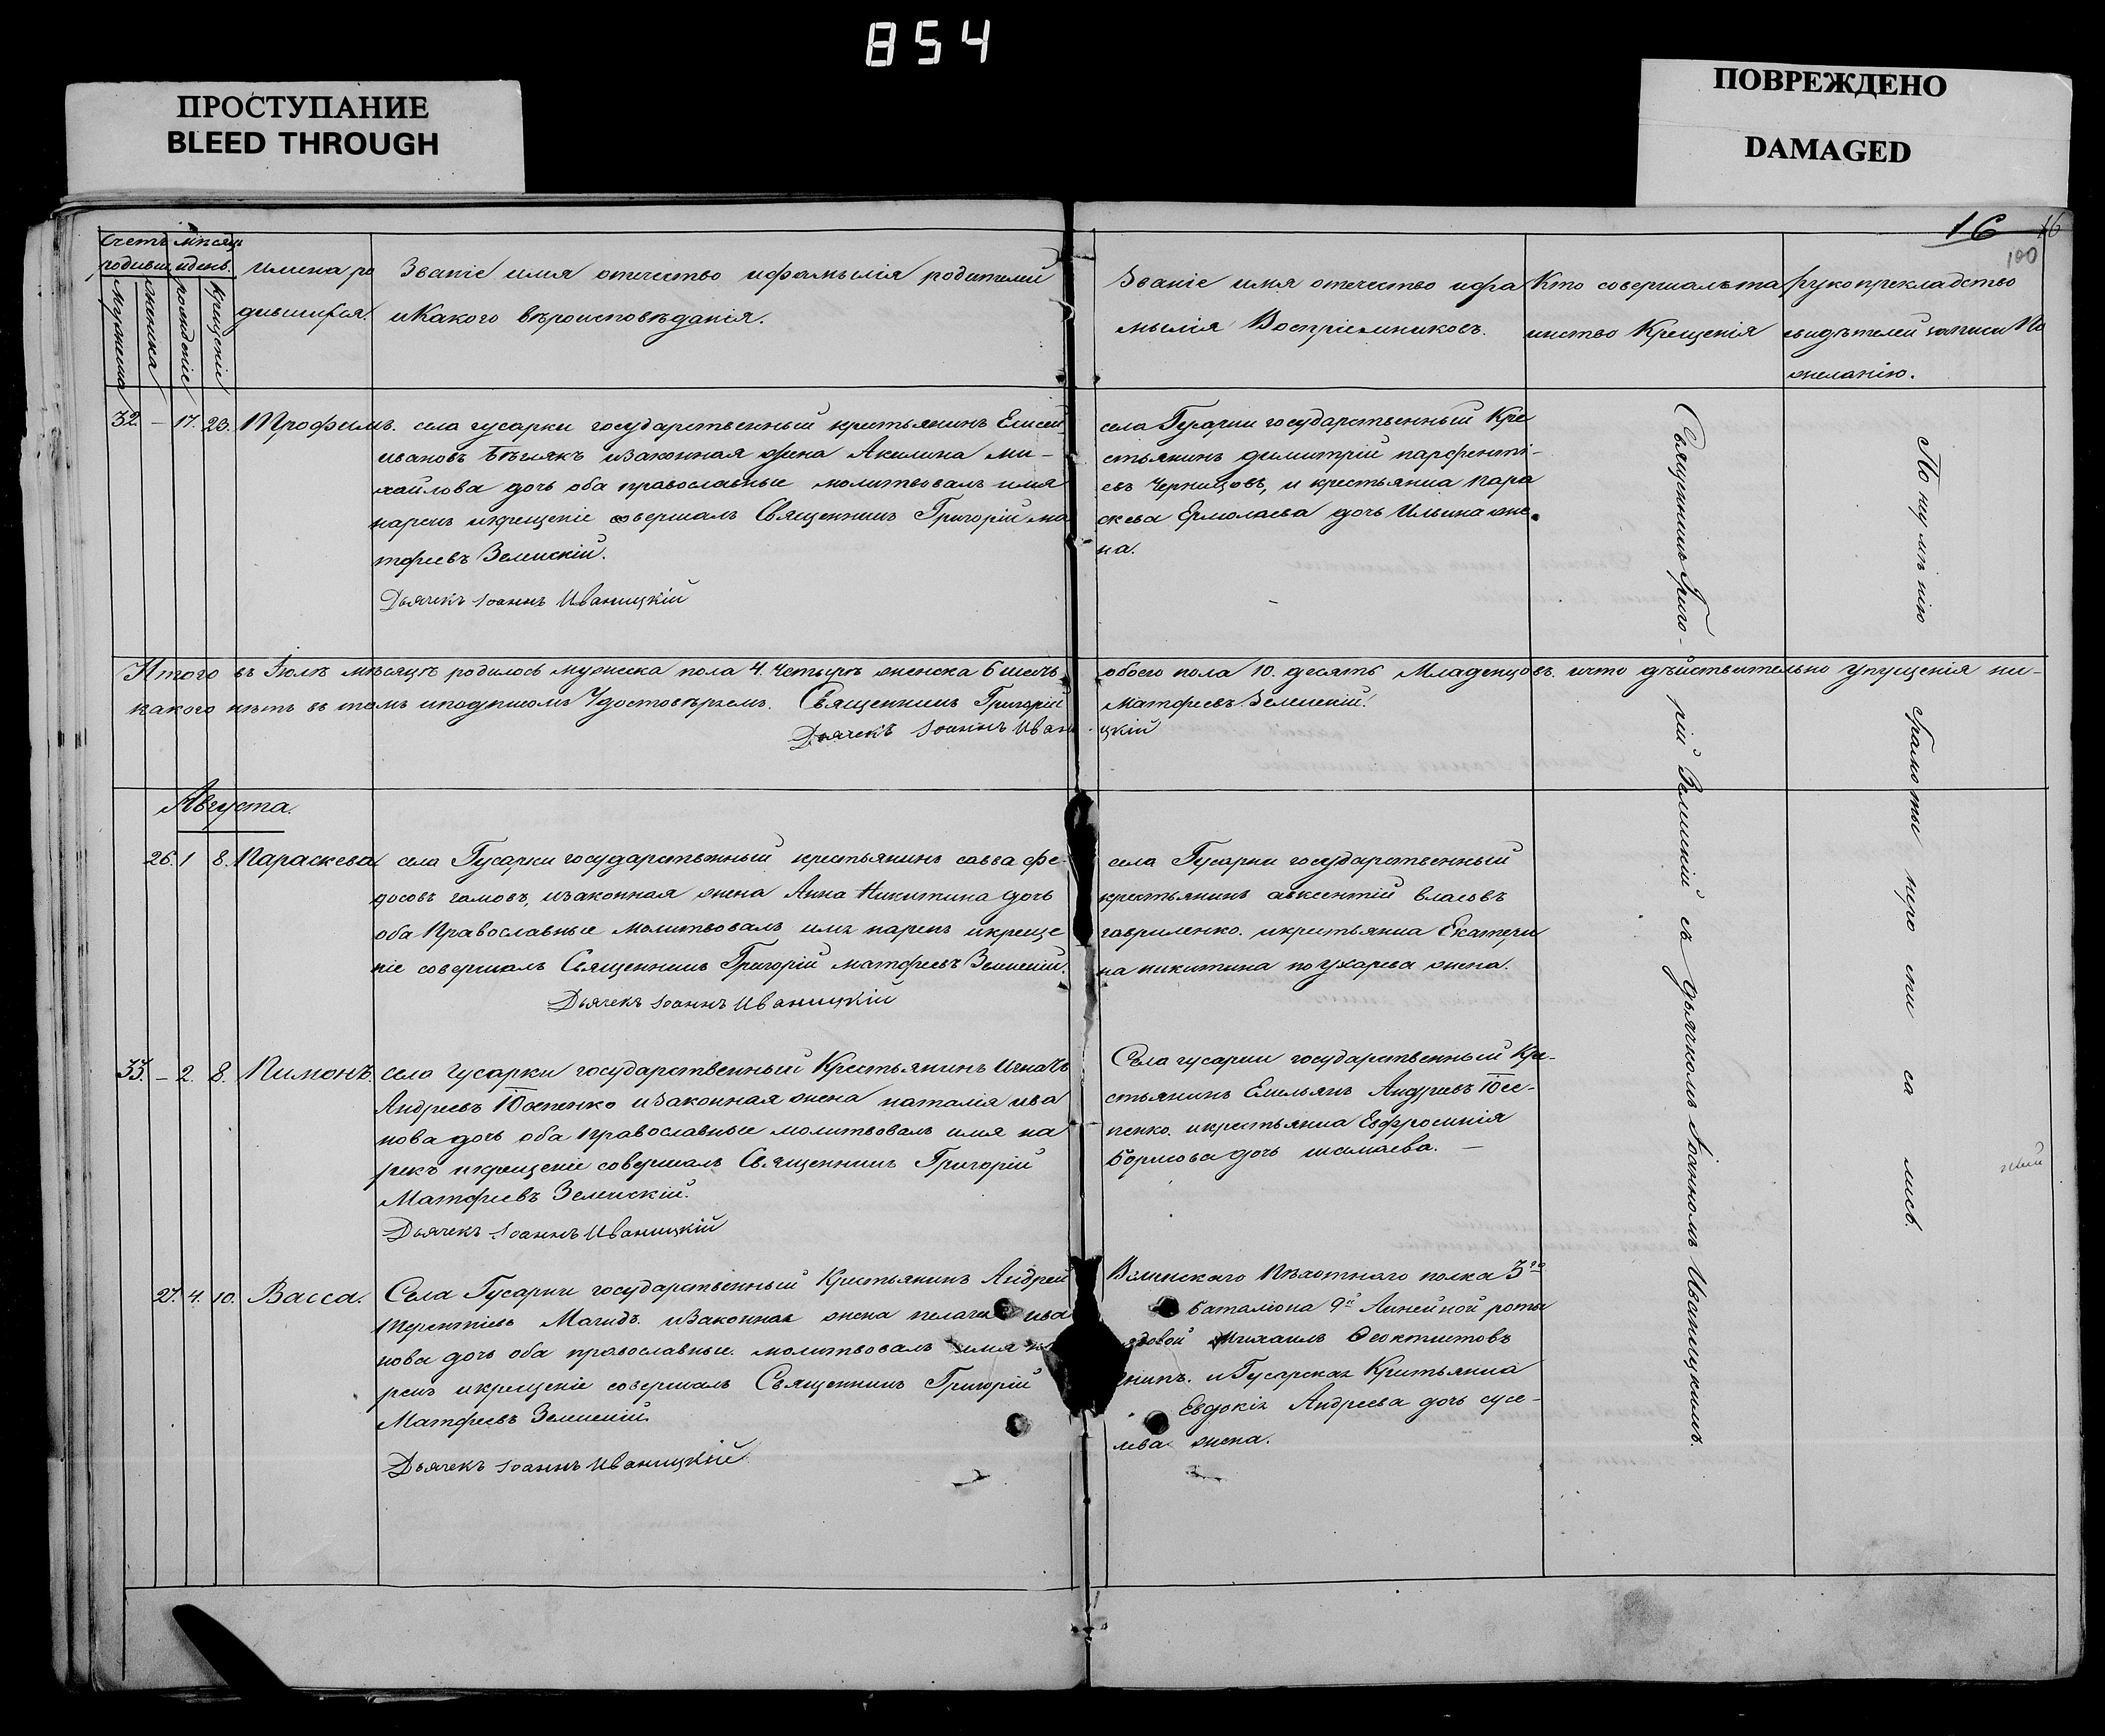 854
ПРОСТУПАНИЕ
BLEED THROUGH
ПОВРЕЖДЕНО
DAMAGED
16
16
100
Счетъ родивш.
мѣсяцъ и день.
мужеска
женска
рожденіе
крещеніе
имена ро
дившихся.
Званіе имя отечество ифамилія родителей
икакого вѣроисповѣданія.
Званіе имя отечество ифа
милія Воспріемниковъ.
Кто совершалъ та
инство Крещенія
рукоприкладство
свидѣтелей записи По
желанію.
32. – 17. 23. Трофимъ.
села гусарки государственный крестьянинъ Елисей
ивановъ Бѣглякъ изаконная жена Акилина ми–
хайлова дочь оба православные молитвовалъ имя
нарекъ икрещеніе совершалъ Священникъ Григорій ма
тфеевъ Зеленскій.
Дьячекъ Іоаннъ Иваницкій
села Гусарки государственный Кре
стьянинъ димитрій парфенті–
евъ Черницовъ, и крестьянка Пара
скева Ермолаева дочь Ильина же
на.
Итого въ Іюлѣ мѣсяцѣ родилось мужеска пола 4. четыре женска 6 шесть обоего пола 10. десять Младенцовъ. ичто дѣйствительно упущенія ни–
какого нѣтъ въ томъ иподписомъ Удостовѣряемъ. Священникъ Григорій Матфеевъ Зеленскій.
Дьячекъ Іоаннъ Иваницкій
Августа.
26. 1 8. Параскева
села Гусарки государственный крестьянинъ савва фе–
досовъ гамовъ, изаконная жена Анна Никитина дочь
оба Православные молитвовалъ имя нарекъ икреще
ніе совершалъ Священникъ Григорій матфеевъ Зеленскій.
Дьячекъ Іоаннъ Иваницкій
села Гусарки государственный
крестьянинъ авксентій власовъ
гавриленко. икрестьянка Екатери
на никитина по ухарева жена.
33. – 2. 8. Пимонъ.
село гусарки государственный Крестьянинъ Игнатъ
Андреевъ Юсепенко изаконная жена наталія ива
нова дочь оба православные молитвовалъ имя на
рекъ икрещеніе совершалъ Священникъ Григорій
Матфеевъ Зеленскій.
Дьячекъ Іоаннъ Иваницкій
Села гусарки государственный Кре–
стьянинъ Емельянъ Андреевъ Юсе–
пенко. икрестьянка Евфросинія
Борисова дочь шамаева. –
27. 4. 10. Васса.
Села Гусарки государственный Крестьянинъ Андрей
Терентіевъ Магидъ. изаконная жена пелагея ива
нова дочь оба православные. молитвовалъ имя на
рекъ икрещеніе совершалъ Священникъ Григорій
Матфеевъ Зеленскій.
Дьячекъ Іоаннъ Иваницкій
Пѣхотнаго полка 3го
баталіона 9й Линейной роты
рядовой Михаилъ Феоктистовъ
и Гусарская Крестьянка
Евдокія Андреева дочь сусе–
лева жена.
Священникъ Григо– рій Зеленскій съ дьячкомъ Іоанномъ Иваницкимъ.
По неумѣнію Грамоты неро спи са лись.